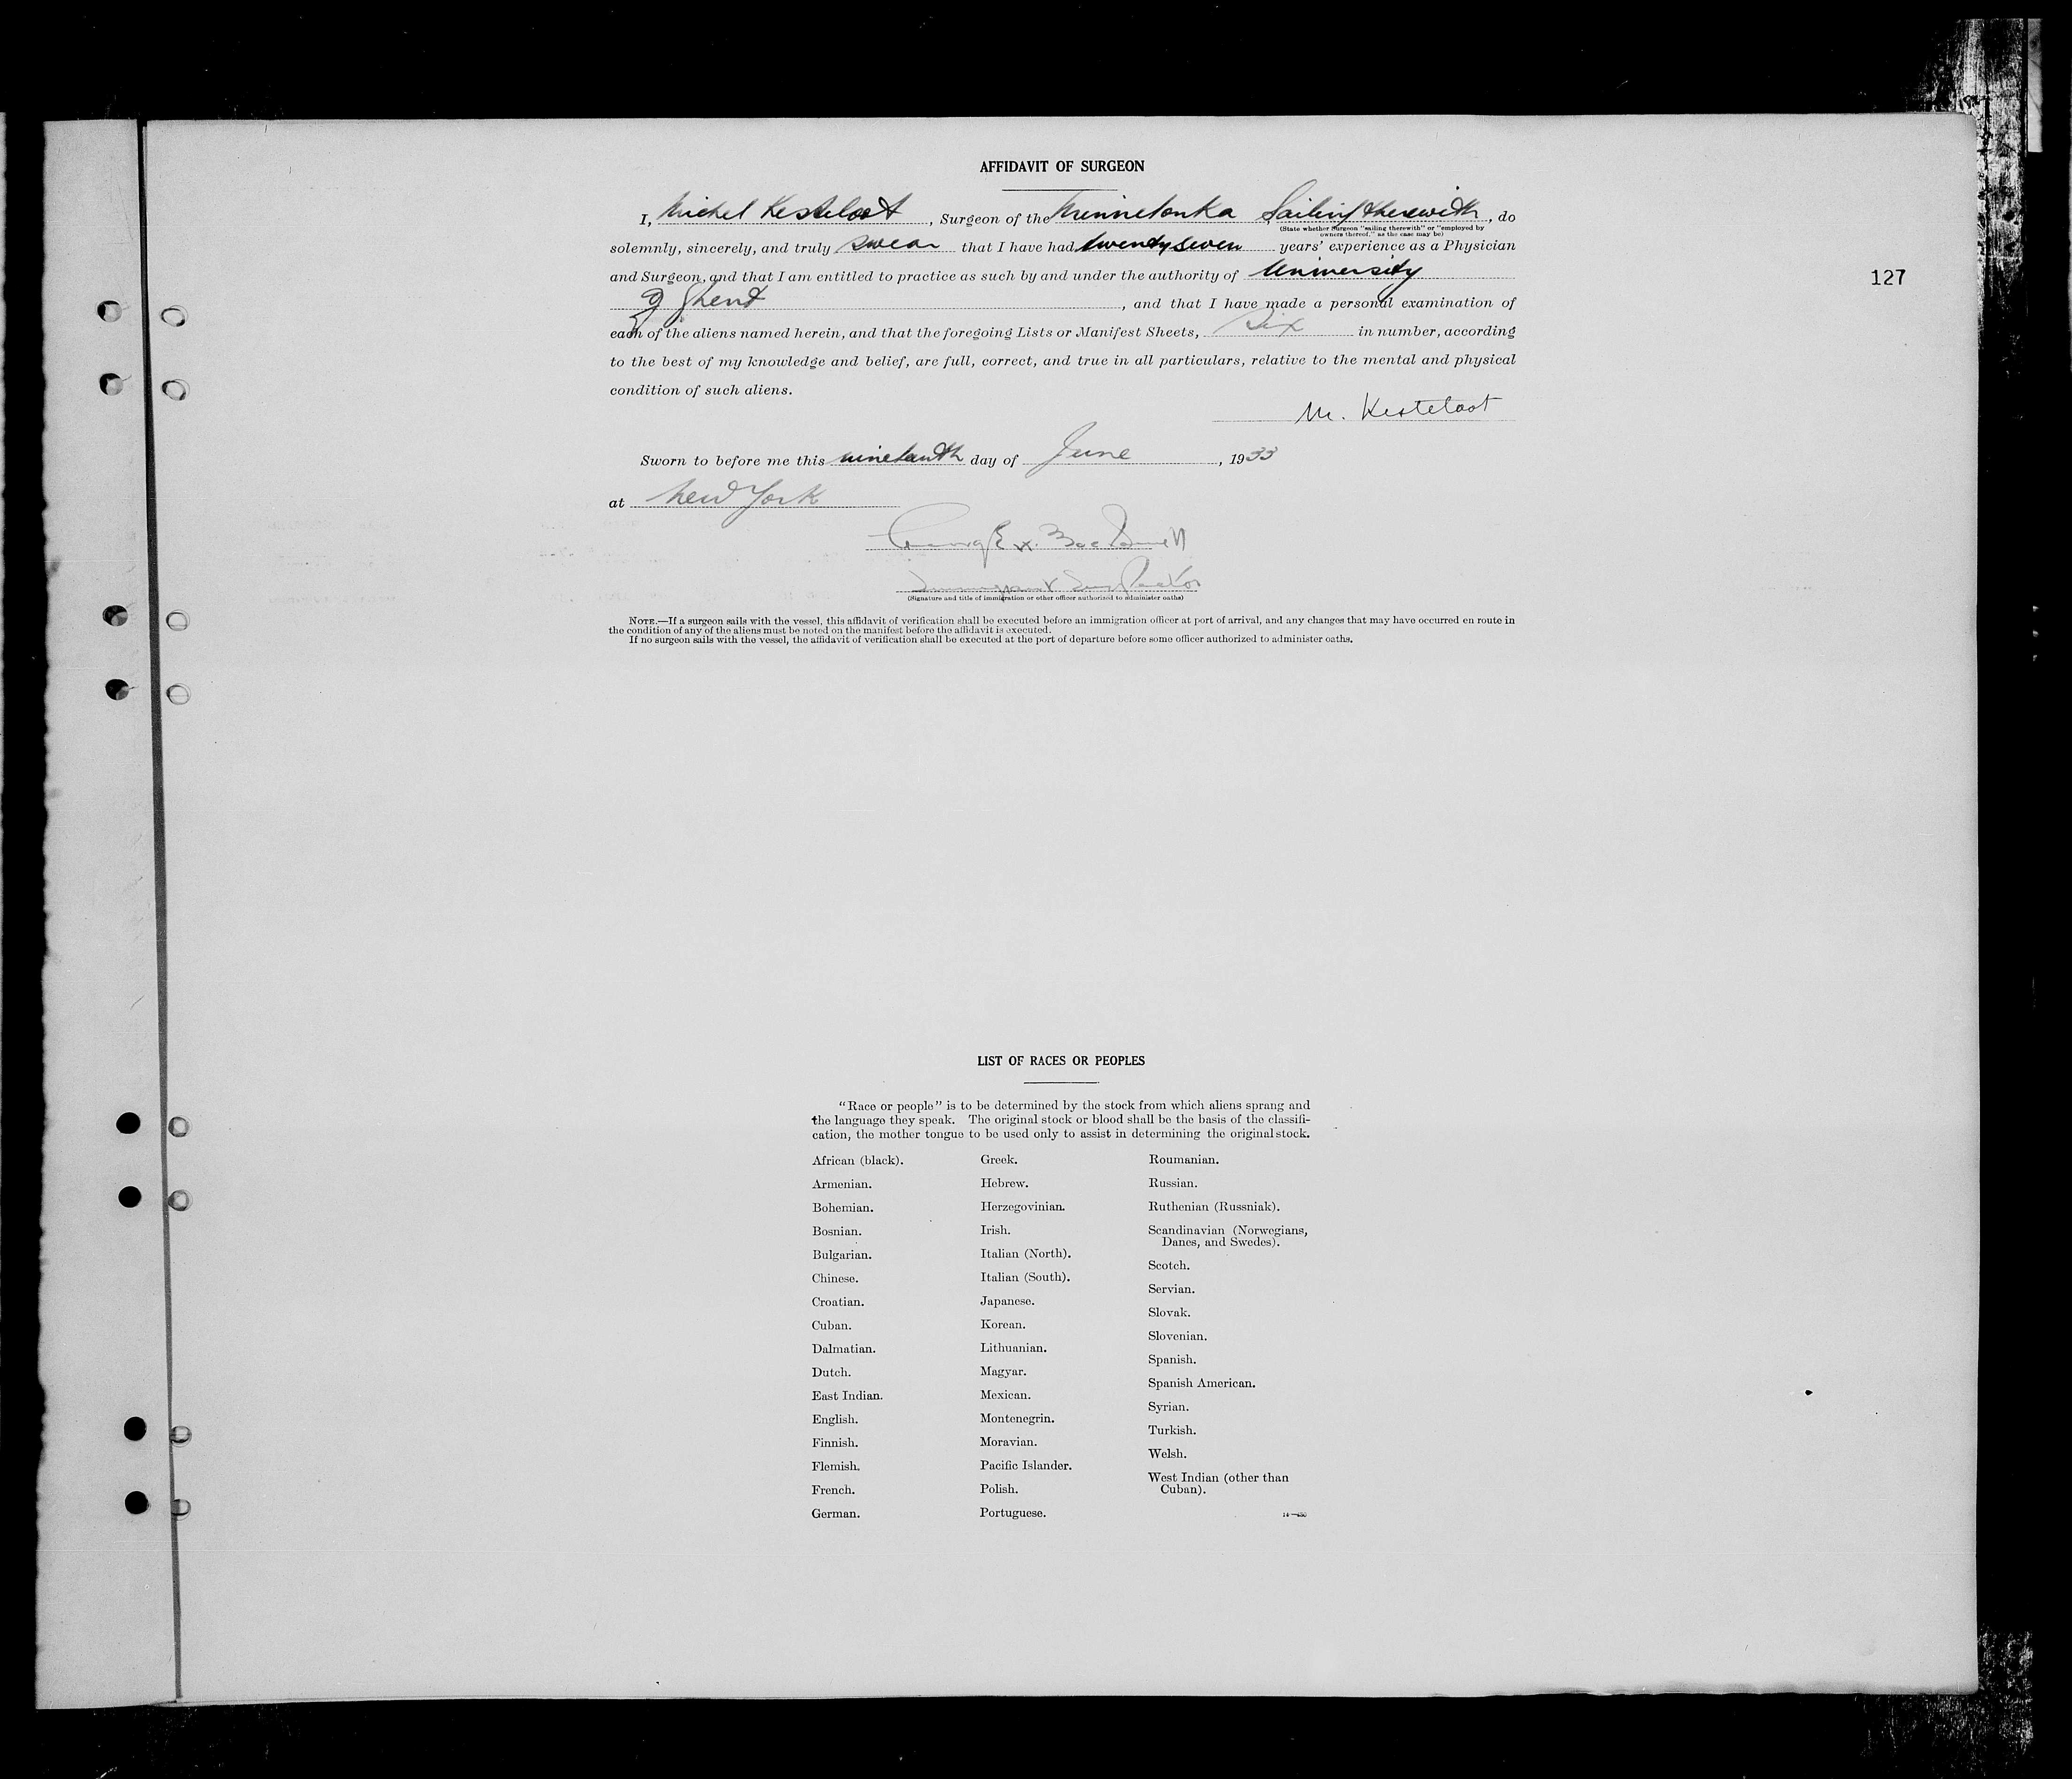 AFFIDAVIT OF SURGEON
I, Michel Kesteloot, Surgeon of the Minnetonka Sailing therewith, do
(State whether Surgeon "sailing therewith" or "employed by
owners thereof," as the case may be)
solemnly, sincerely, and truly swear that I have had twenty seven years' experience as a Physician
and Surgeon, and that I am entitled to practice as such by and under the authority of University
of Ghent, and that I have made a personal examination of
each of the aliens named herein, and that the foregoing Lists or Manifest Sheets, Six in number, according
to the best of my knowledge and belief, are full, correct, and true in all particulars, relative to the mental and physical
condition of such aliens.
M. Kesteloot
Sworn to before me this nineteenth day of June, 1933
at New York
Immigrant Inspector
(Signature and title of immigration or other officer authorized to administer oaths)
NOTE.—If a surgeon sails with the vessel, this affidavit of verification shall be executed before an immigration officer at port of arrival, and any changes that may have occurred en route in
the condition of any of the aliens must be noted on the manifest before the affidavit is executed.
If no surgeon sails with the vessel, the affidavit of verification shall be executed at the port of departure before some officer authorized to administer oaths.
127
LIST OF RACES OR PEOPLES
"Race or people" is to be determined by the stock from which aliens sprang and
the language they speak. The original stock or blood shall be the basis of the classifi-
cation, the mother tongue to be used only to assist in determining the original stock.
African (black).
Armenian.
Bohemian.
Bosnian.
Bulgarian.
Chinese.
Croatian.
Cuban.
Dalmatian.
Dutch.
East Indian.
English.
Finnish.
Flemish.
French.
German.
Greek.
Hebrew.
Herzegovinian.
Irish.
Italian (North).
Italian (South).
Japanese.
Korean.
Lithuanian.
Magyar.
Mexican.
Montenegrin.
Moravian.
Pacific Islander.
Polish.
Portuguese.
Roumanian.
Russian.
Ruthenian (Russniak).
Scandinavian (Norwegians,
Danes, and Swedes).
Scotch.
Servian.
Slovak.
Slovenian.
Spanish.
Spanish American.
Syrian.
Turkish.
Welsh.
West Indian (other than
Cuban).